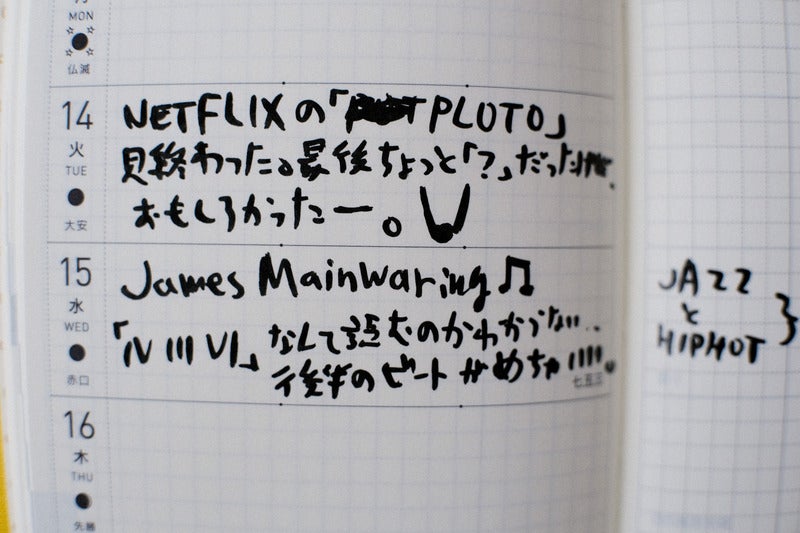 月
MON
仏滅
14
火
TUE
大安
NETFLIXの「PLUTO」
見終わった。最後ちょっと「?」だったけど、
おもしろかったー。
15
水
WED
赤口
James Mainwaring♫
「IV III VI」なんて読むのかわからない..
後半のビートがめちゃいい。
七五三
JAZZ
と
HIPHOT
}
16
木
THU
先勝